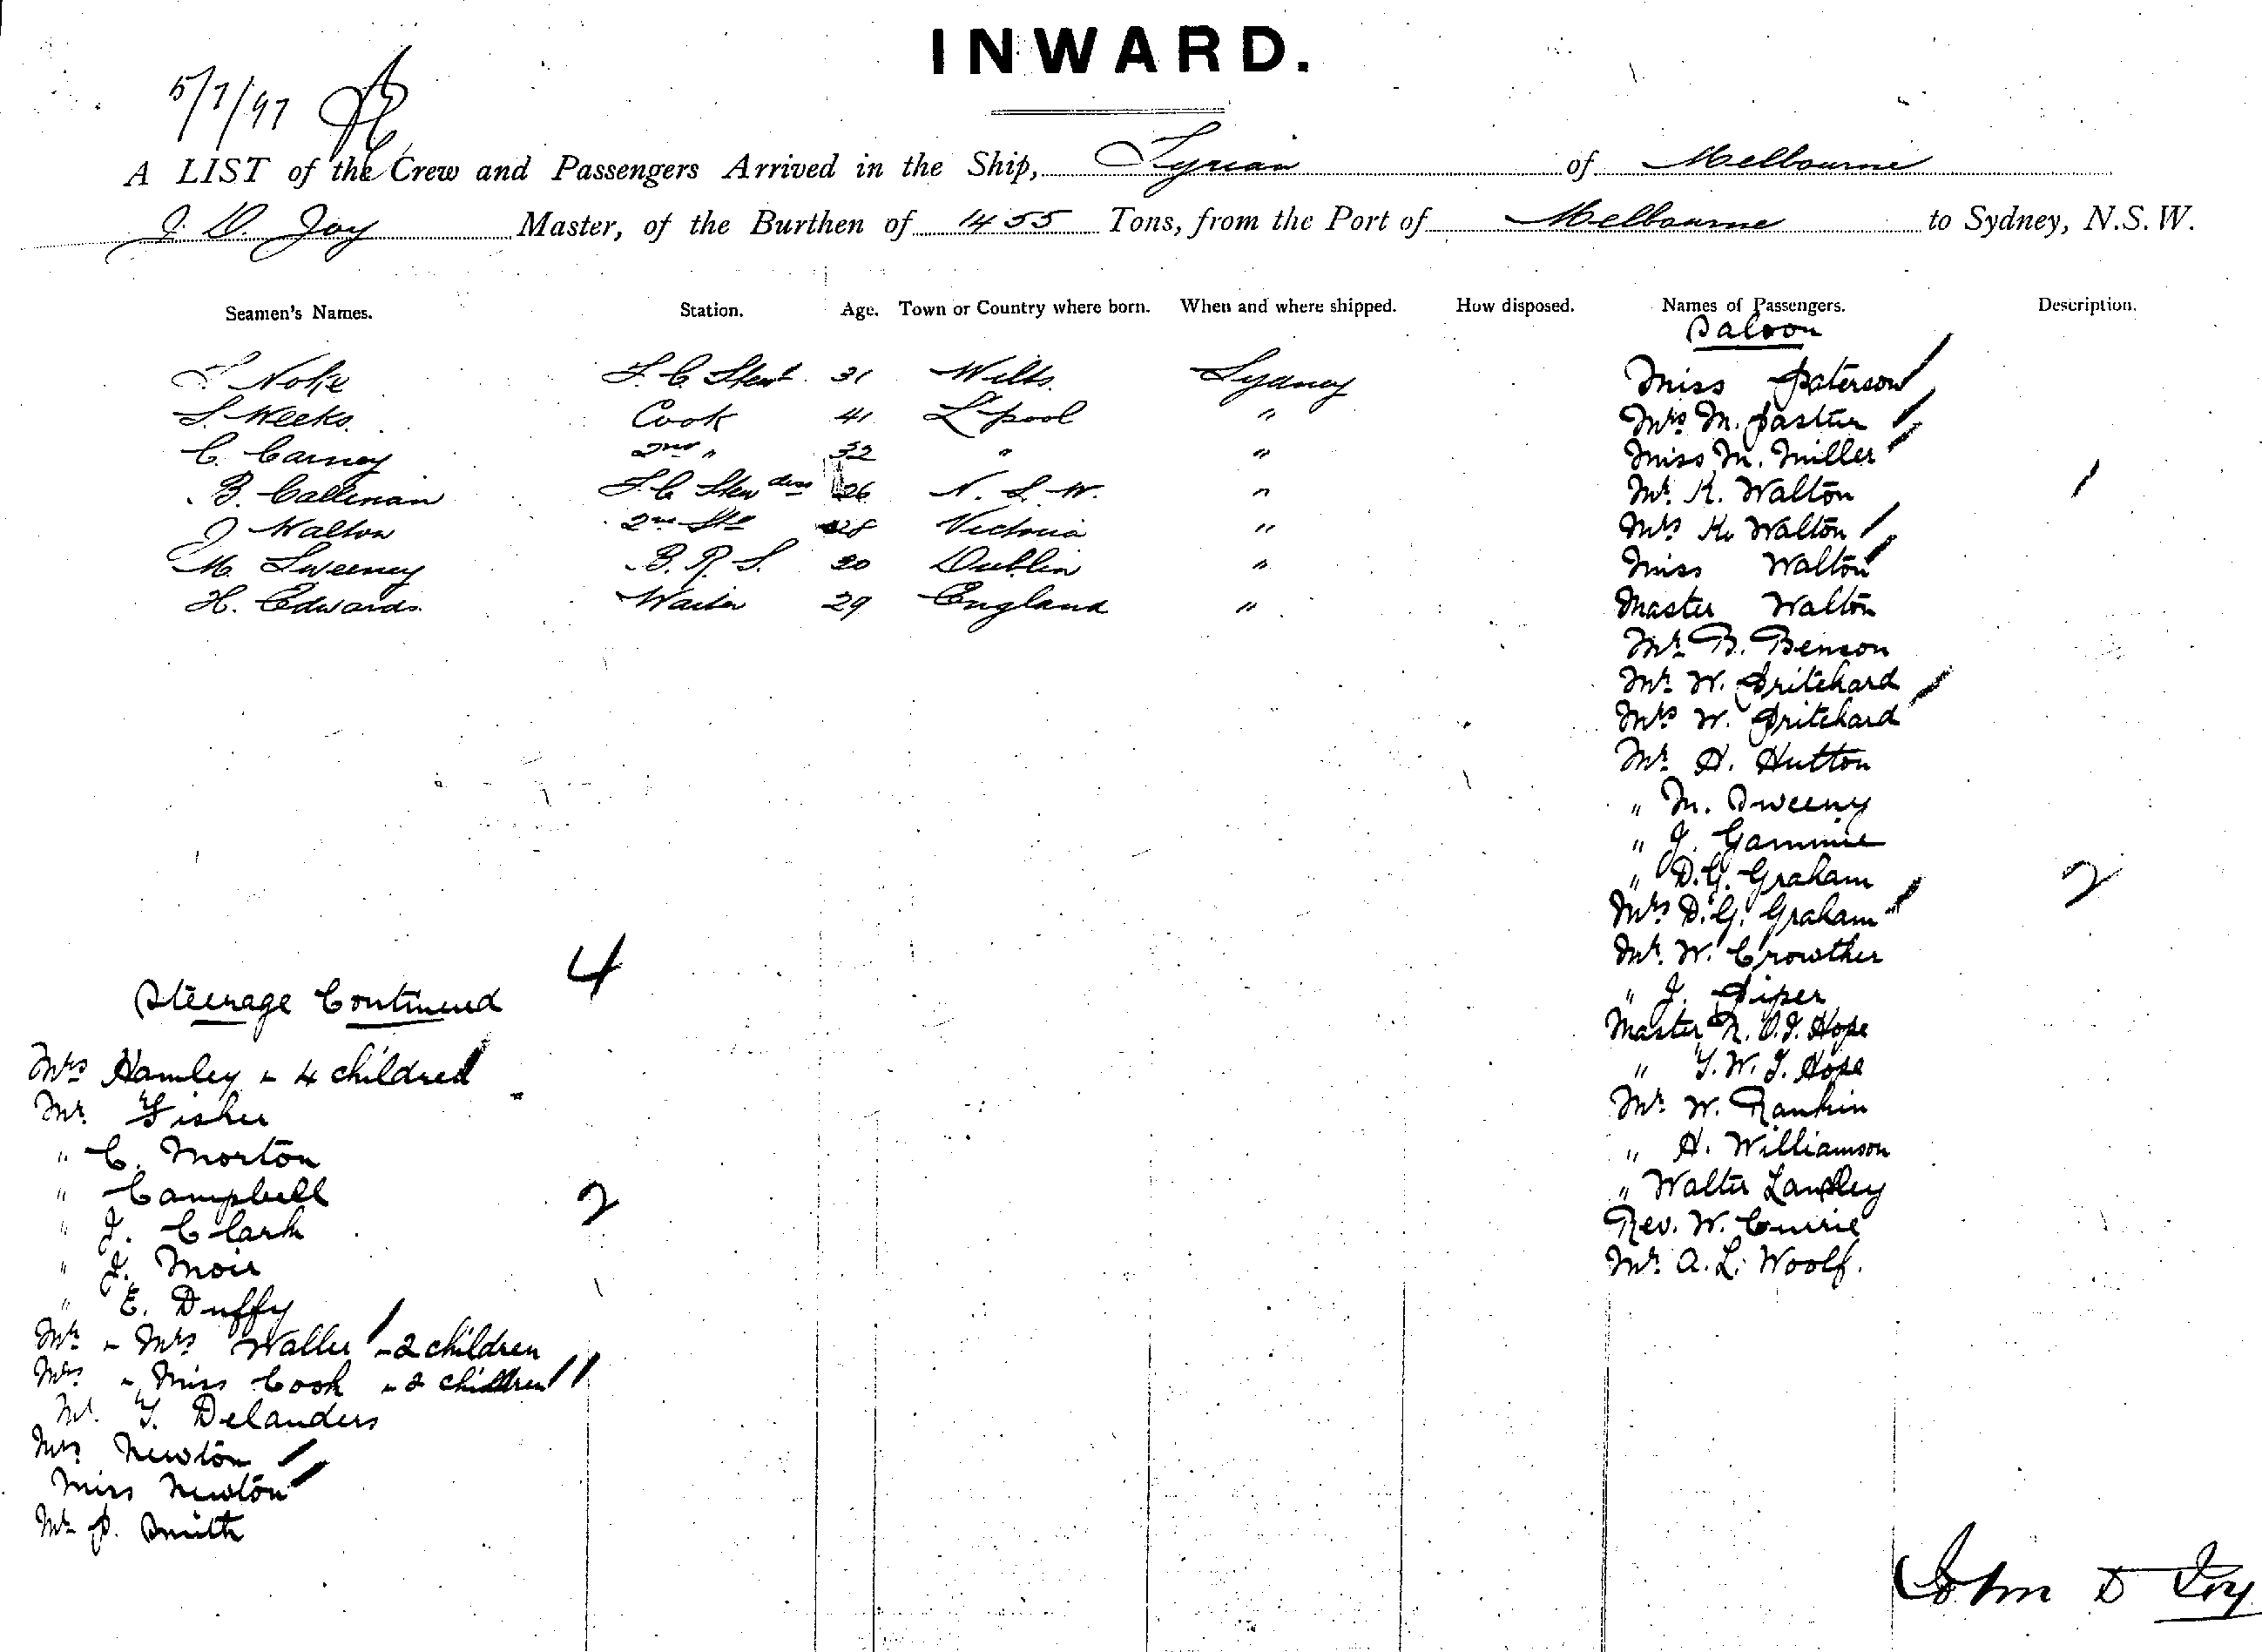 INWARD.
5/7/97
A LIST of the Crew and Passengers Arrived in the Ship, Syrian of Melbourne
J. D. Joy Master, of the Burthen of 1455 Tons, from the Port of Melbourne to Sydney, N.S.W.
Seamen's Names. Station. Age. Town or Country where born. When and where shipped. How disposed. Names of Passengers. Description.
Saloon
Noke F. C. Stewt 31 Wilts. Sydney
S. Weeks. Cook 41 L'pool "
C. Carney 2nd " 32 " "
B. Callinan F. C. Stewdess 26 N. S. W. "
J Walton 2nd Std 28 Victoria "
M. Sweeney B. R. S. 20 Dublin "
H. Edwards. Waiter 29 England "
Miss Paterson
Mrs M.
Miss M. Miller
Mr. K. Walton
Mrs K. Walton
Miss Walton
Master Walton
Mr. B. Benson
Mr. W. Pritchard
Mrs W. Pritchard
Mr. H. Hutton
" M. Sweeny
" J. Gammie
" D. G. Graham
Mrs D. G. Graham
2
Mr. W. Crowther
" J. Piper
Master N. O. J. Hope
" T. W. J. Hope
Mr. W. Rankin
" H. Williamson
" Walter Langley
Rev. W. Currie
Mr. A. L. Woolf.
4
Steerage Continued
Mrs Hamley - 4 children
Mr. Fisher
" C. Morton
" Campbell
2
" J. Clark
" J. Moir
" E. Duffy
Mr - Mrs Waller - 2 children
Mrs - Miss Cook - 2 children
Mr. F. Delanders
Mrs Newton
Miss Newton
Mr P. Smith
John D Joy